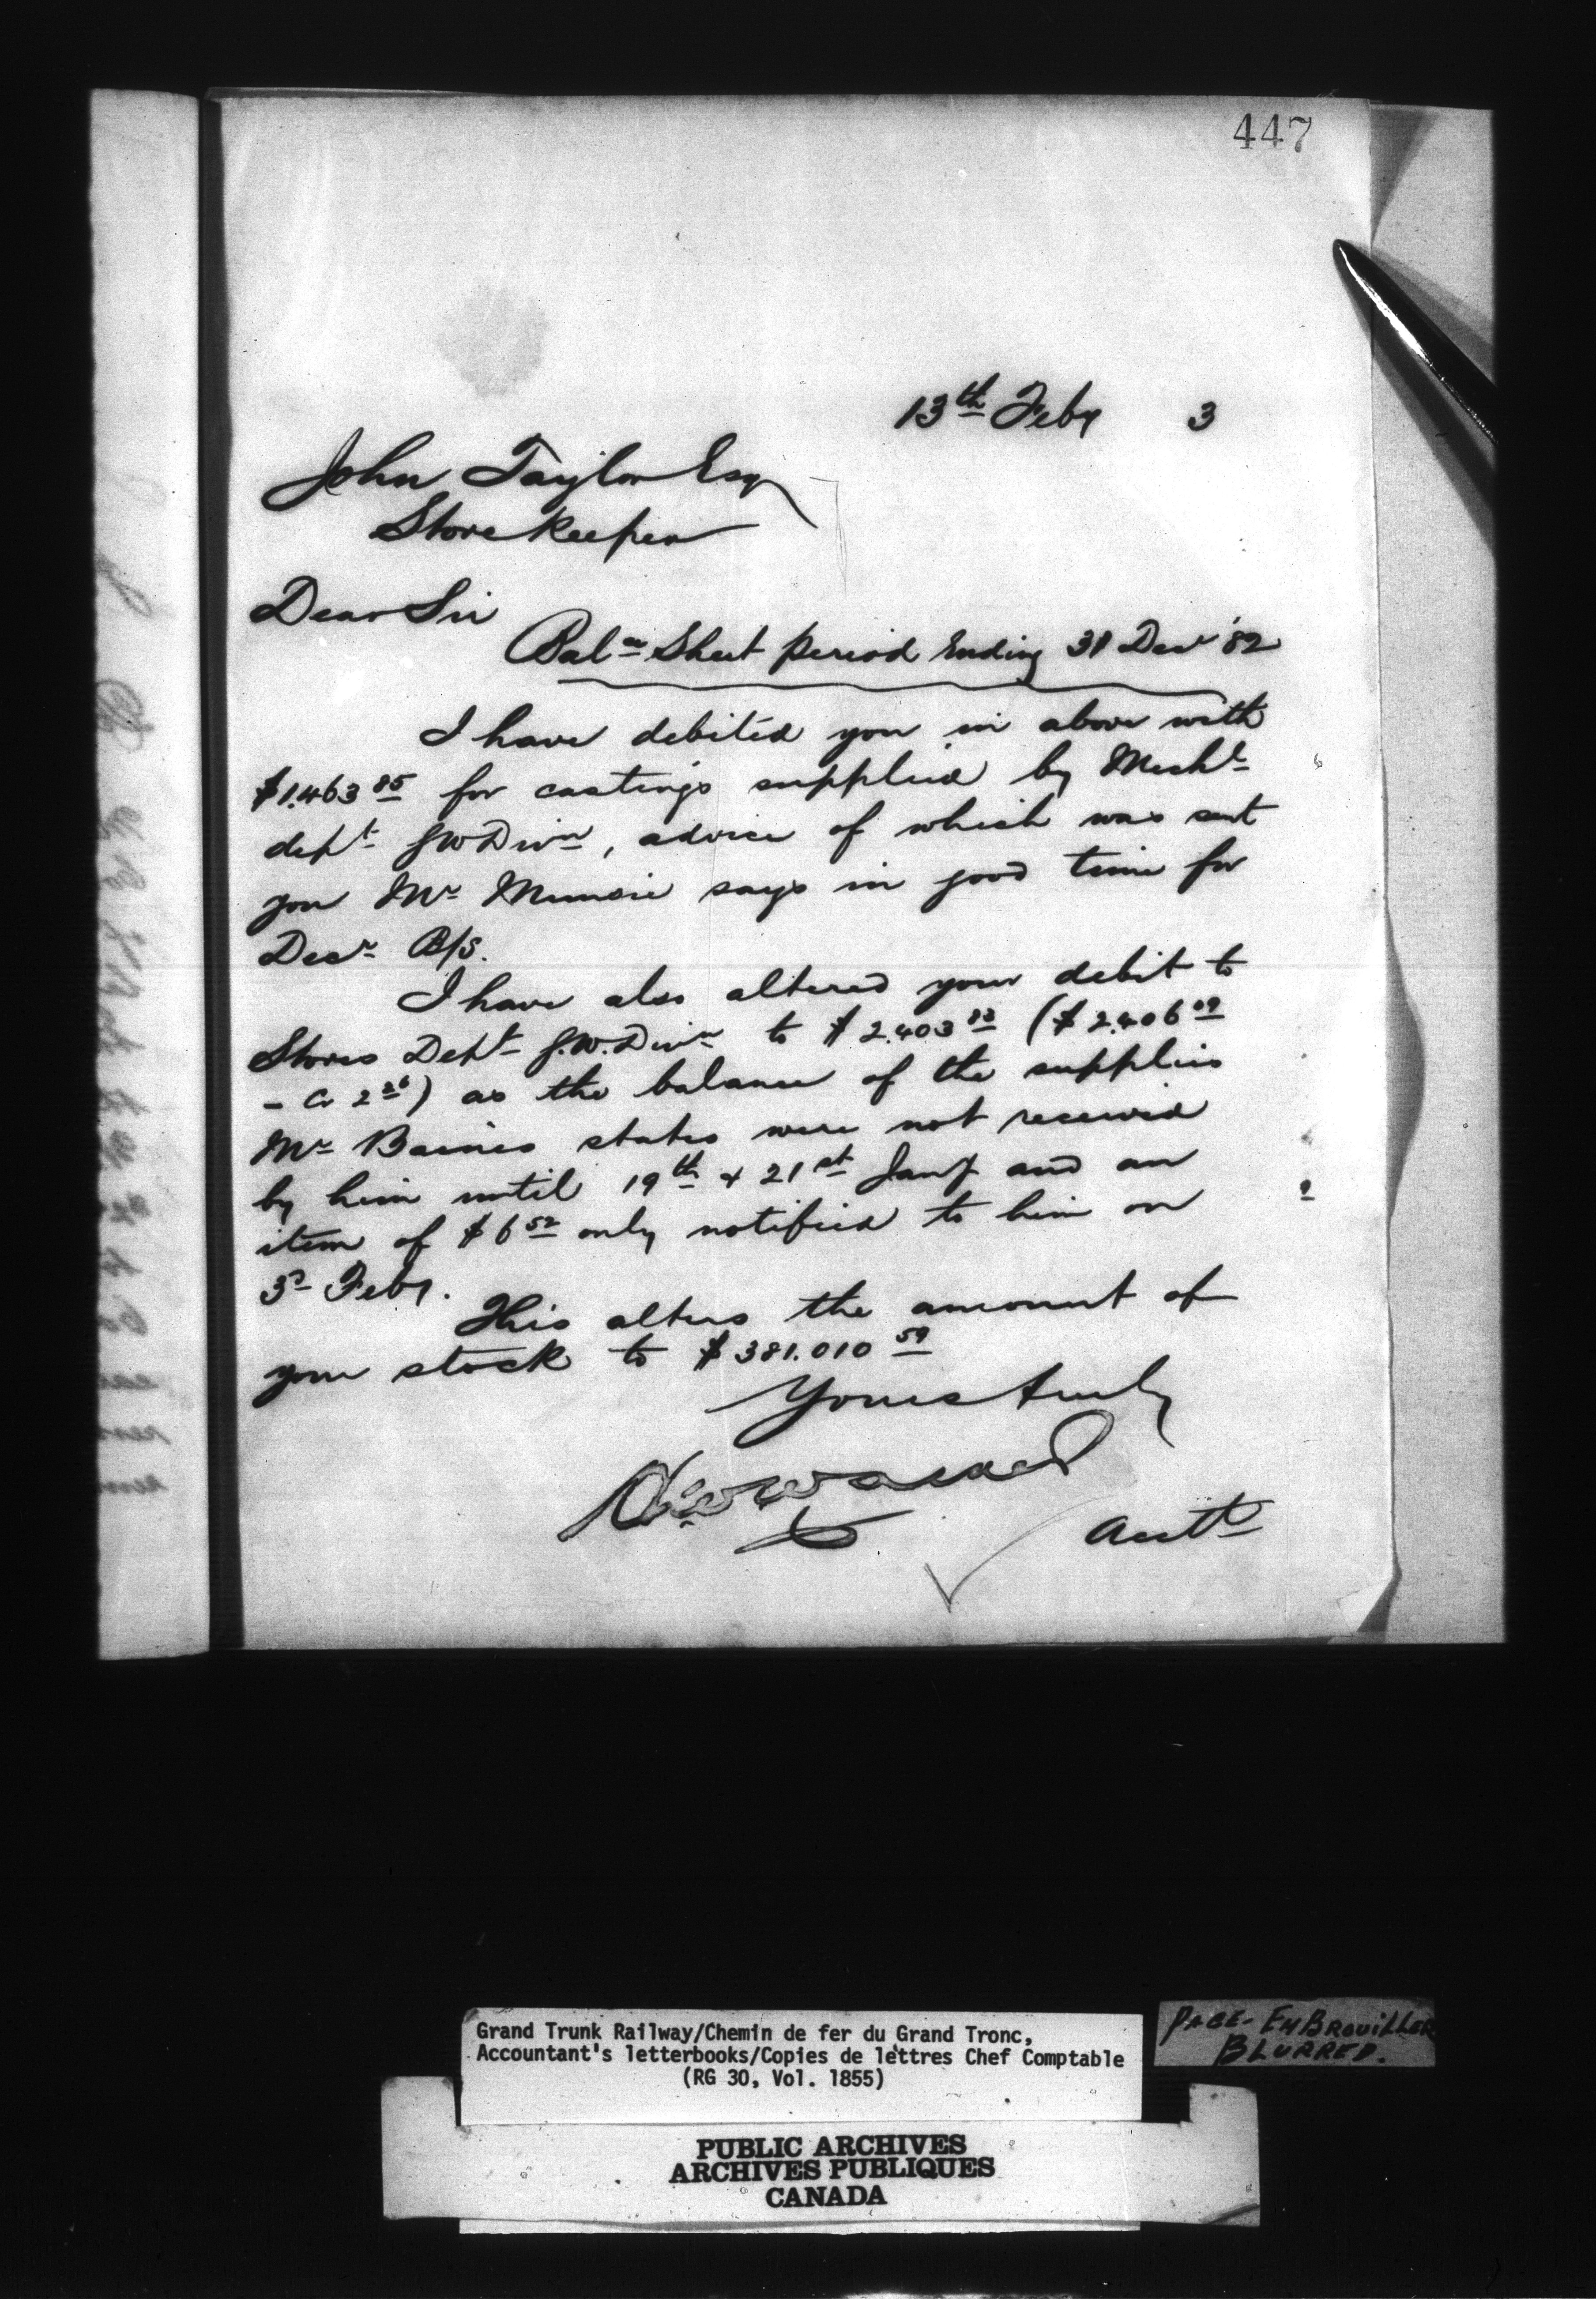 447
13th Feby 3
John Taylor Esq
Store Keeper
Dear Sir
Balce Sheet period Ending 31 Decr '82
I have debited you in above with
$1.463 85 for castings supplied by Mechl
dept G W Divn, advice of which was sent
you Mr says in good time for
Decr B/S.
I have also altered your debit to
Stores Dept G.W. Divn to $2.403 83 ($2.406 09
- Cr 2 26) as the balance of the supplies
Mr Baines states were not received
by him until 19th & 21st Jany and an
item of $6 52 only notified to him on
3d Feby.
This alters the amount of
your stock to $381.010 59
Yours truly
Acctt
Grand Trunk Railway/Chemin de fer du Grand Tronc,
Accountant's letterbooks/Copies de lettres Chef Comptable
(RG 30, Vol. 1855)
PAGE - EMBROUILLER
BLURRED.
PUBLIC ARCHIVES
ARCHIVES PUBLIQUES
CANADA